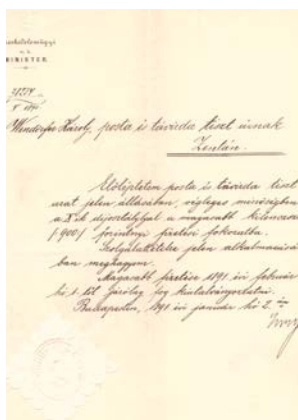 MINISTER.
Windorfer Károly, posta és távirda tiszt úrnak
Zentán.
Előléptetem posta és távirda tiszt
urat jelen állásában, végleges minőségben
a X. díjosztálybal a magasabb kilenczszáz
(900) forintnyi fizetési fokozatba.
Szolgálattételre jelen alkalmazásá-
ban meghagyom.
Magasabb fizetése 1891. évi február
hó 1-től járólag fog kiutalványoztatni.
Budapesten, 1891 évi január hó 2.